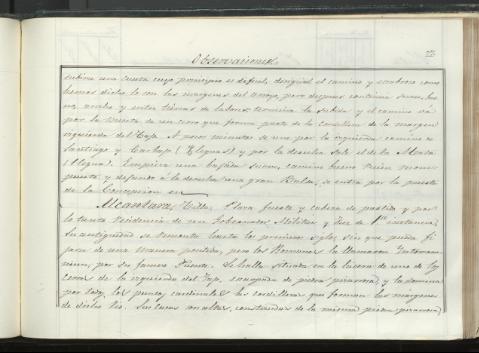 Observaciones
subirse una cuesta cuyo principio es dificil, desigual el camino y sombrio como
hemos dicho lo son las margenes del arroyo, pero despues continua suave, bue
no, ancho y entre tierras de labor: termina la subida y el camino va
por la cuesta de un cerro que forma parte de la cordillera de la margen
izquierda del Tajo. A pocos minutos se une por la izquierda camino de
Santiago y Carbajo ( leguas) y por la derecha sale el de la Mata
( legua). Empieza una bajada suave, camino bueno recien recom
puesto, y dejando a la derecha una gran se entra por la puerta
de la Concepcion en
Alcantara, Villa, Plaza fuerte y cabeza de partido y por
lo tanto residencia de un Gobernador Militar y Juez de 1ª instancia.
Su antiguedad se remonta hasta los primeros siglos, sin que pueda fi
jarse de una manera positiva, pero los Romanos la llamaron
por su famoso Puente. Se halla situada en la ladera de uno de los
cerros de la izquierda del Tajo, de piedra pizarrosa, y la domina
por todos los puntos cardinales las cordilleras que forman las margenes
de dicho Rio. Sus casas son altas, construidas de la misma piedra pizarrosa,